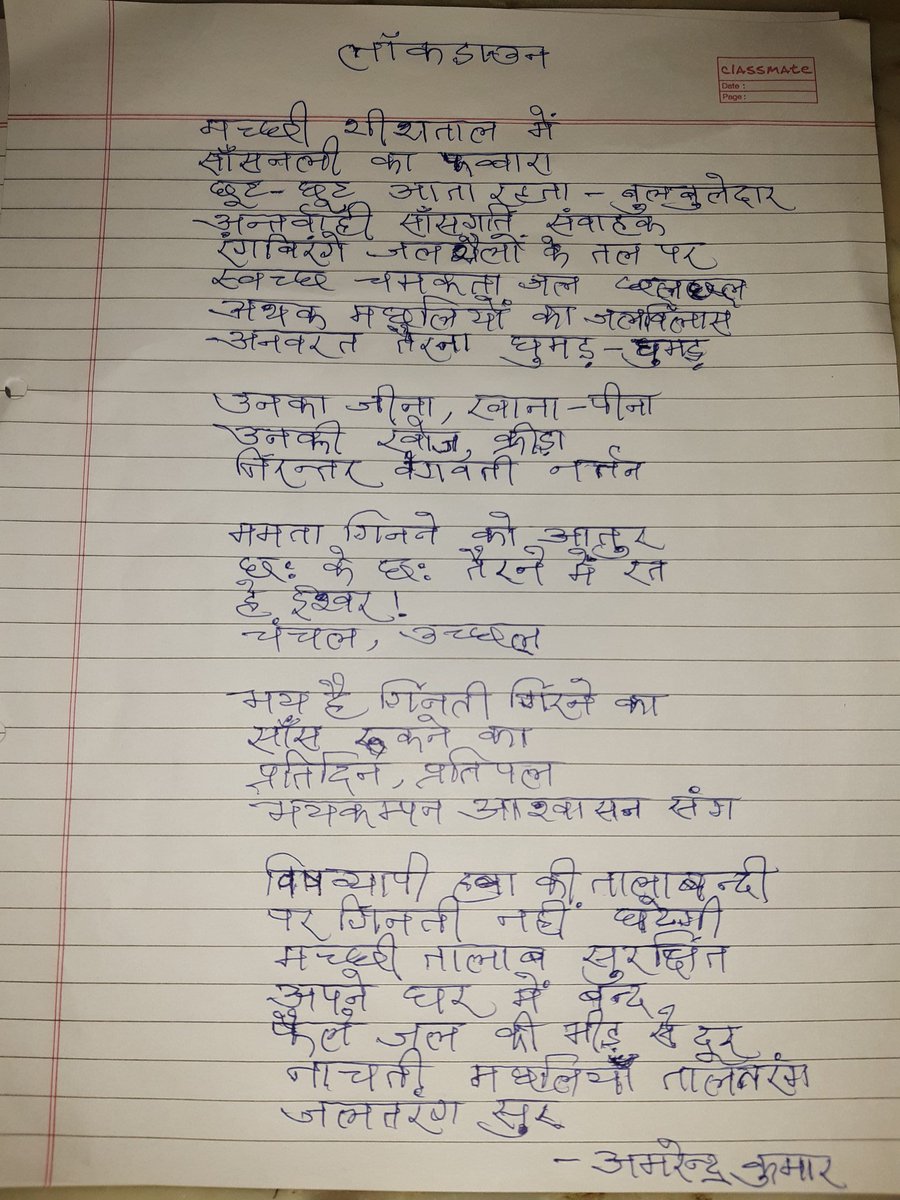 लॉकडाउन
CLASSMATE
Date :
Page :
मच्छी शीशताल में
साँसनली का फव्वारा
छूट-छूट आता रहता - बुलबुलेदार
अन्तर्वाही साँसगति संवाहक
रंगबिरंगे जलशैलों के तल पर
स्वच्छ चमकता जल छलछल
अथक मछलियों का जलविलास
अनवरत तैरना घुमड़-घुमड़
उनका जीना, खाना-पीना
उनकी खोज, क्रीड़ा
निरन्तर वेगवती नर्तन
ममता गिनने को आतुर
छः के छः तैरने में रत
हे ईश्वर!
चंचल, उच्छल
भय है गिनती गिरने का
साँस रुकने का
प्रतिदिन, प्रतिपल
भयकम्पन आश्वासन संग
विषव्यापी हवा की तालाबन्दी
पर गिनती नहीं घटेगी
मच्छी तालाब सुरक्षित
अपने घर में बन्द
फैले जल की भीड़ से दूर
नाचती मछलियाँ तालतरंग
जलतरंग सुर
- अमरेन्द्र कुमार